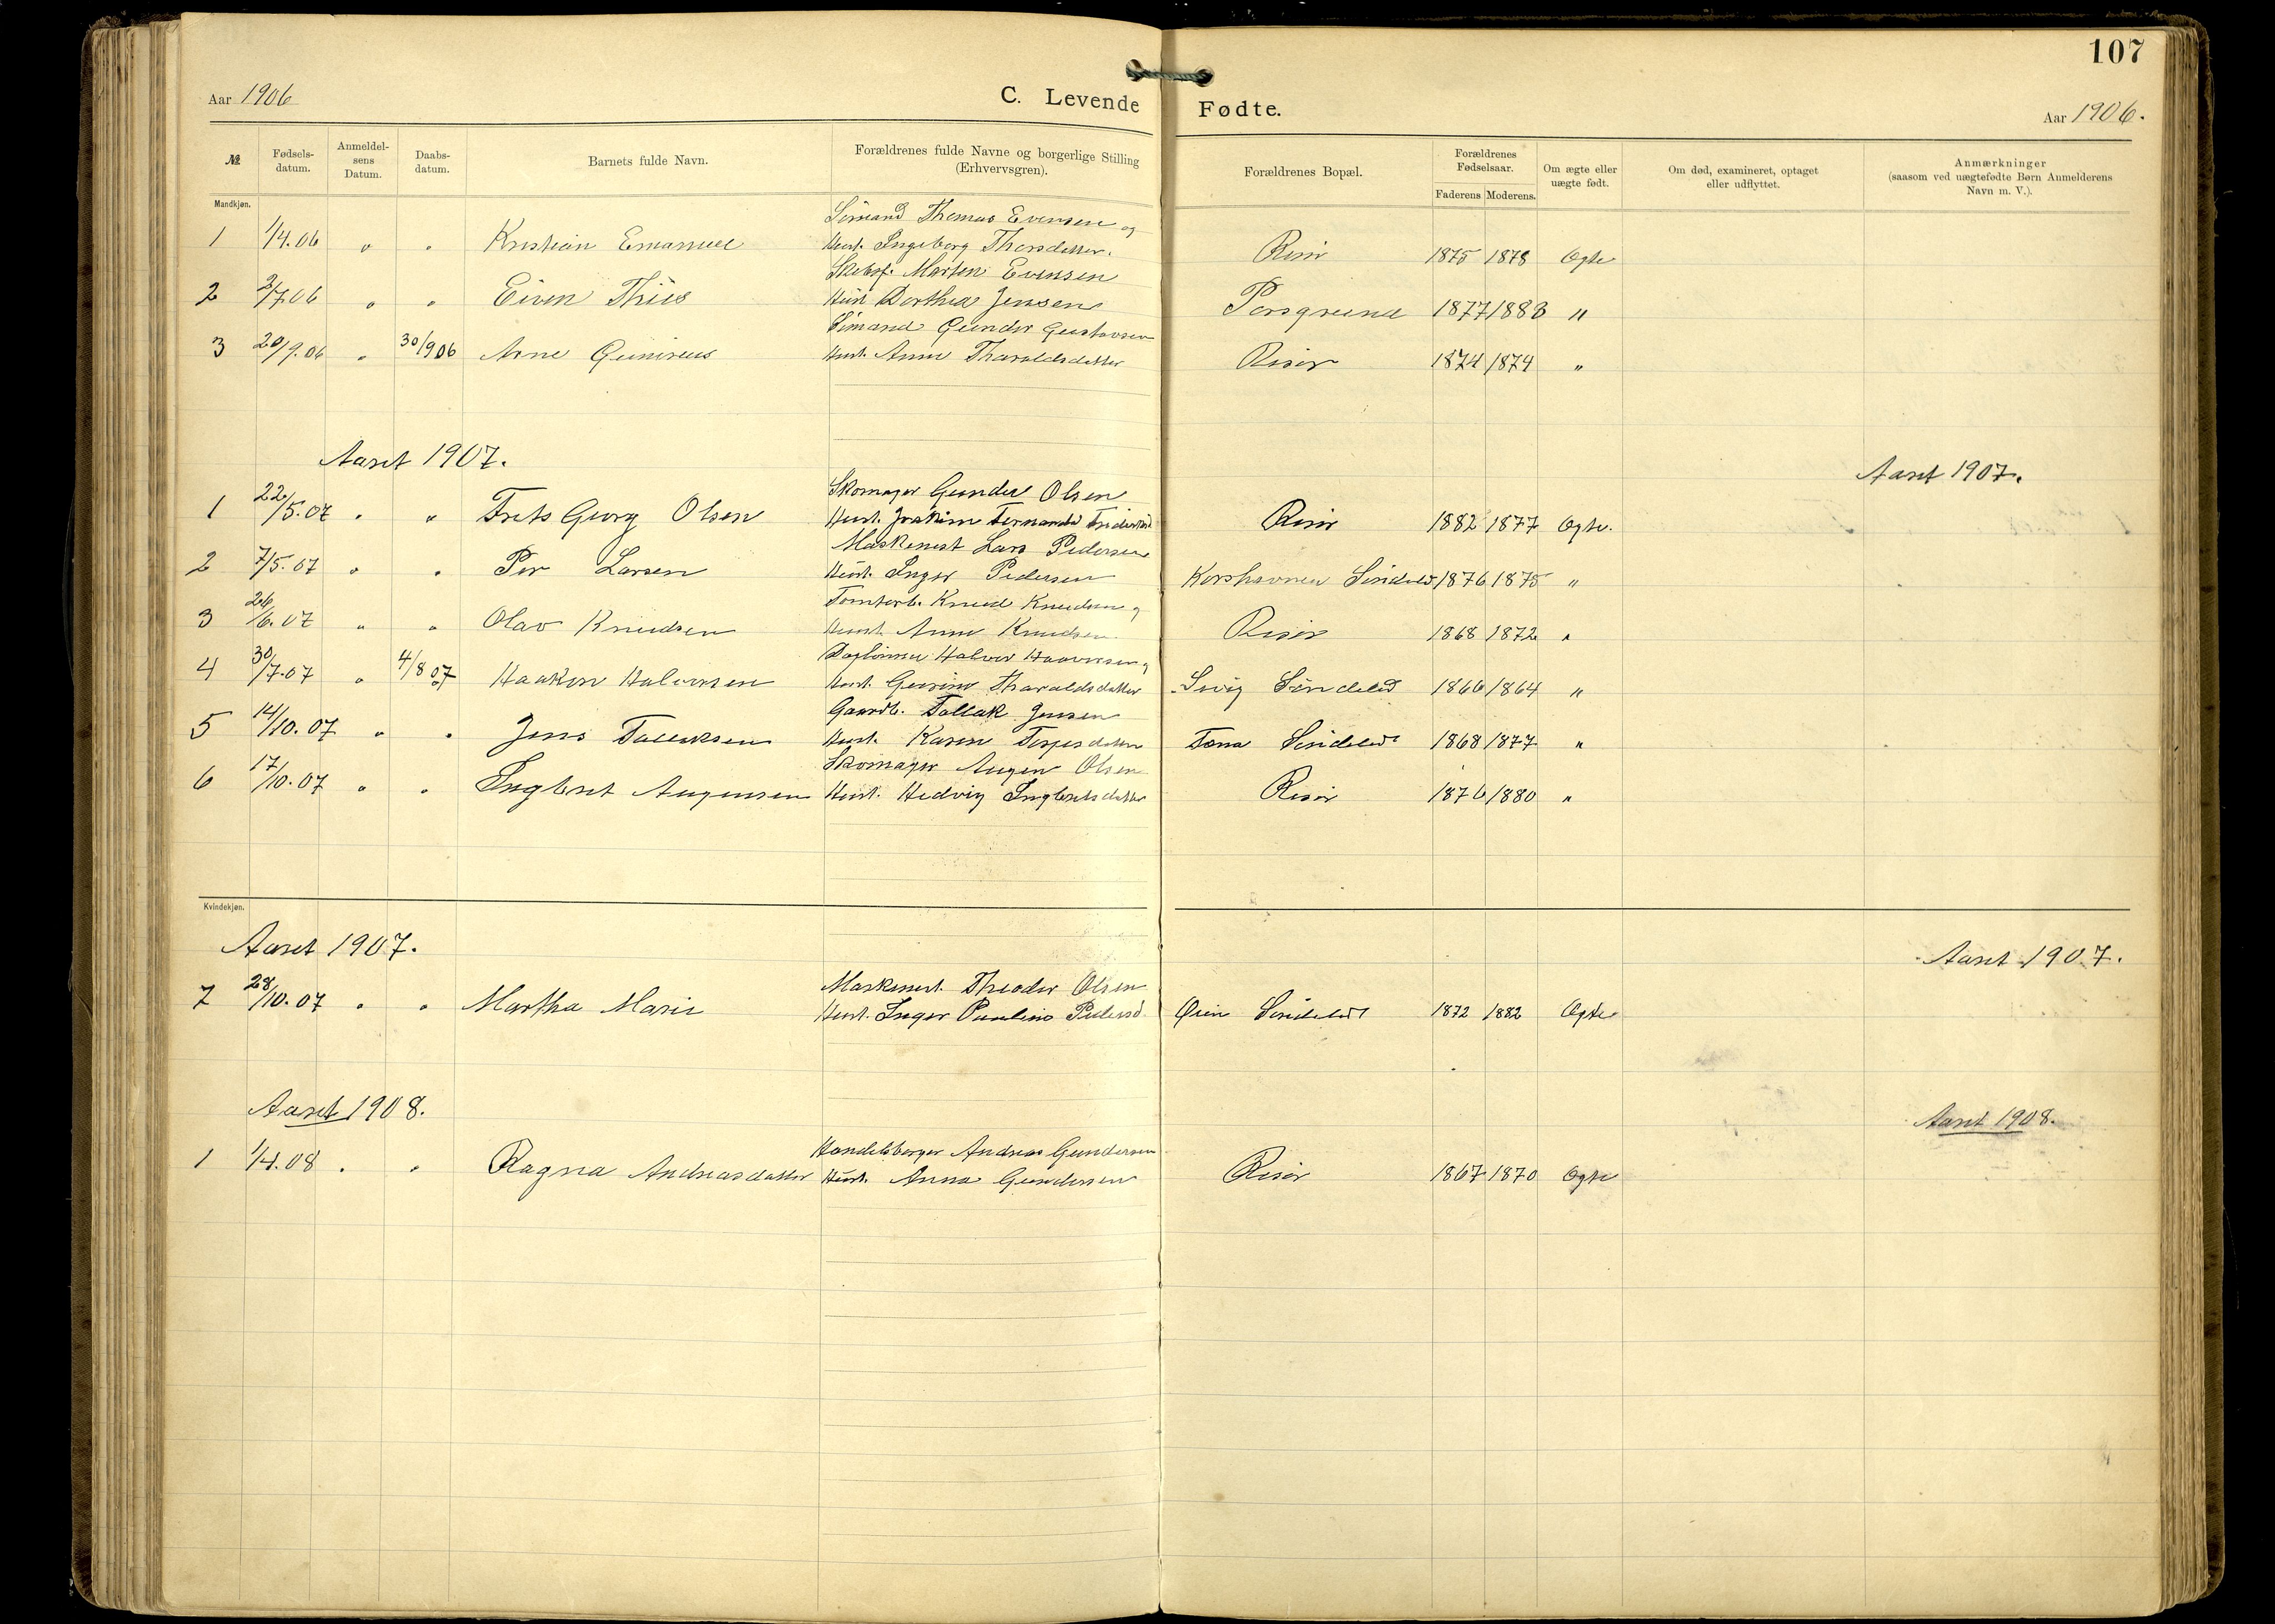 107
Aar 1906
C. Levende Fødte.
Aar 1906.
№
Fødsels-datum.
Anmeldel-sens Datum.
Daabs-datum.
Barnets fulde Navn.
Forældrenes fulde Navne og borgerlige Stilling (Erhvervsgren).
Forældrenes Bopæl.
Forældrenes Fødselsaar.
Faderens Moderens.
Om ægte eller uægte født.
Om død, examineret, optaget eller udflyttet.
Anmærkninger (saasom ved uægtefødte Børn Anmelderens Navn m. V.).
Mandkjøn.
Sømand Thomas Evensen og
1 1/4.06 " " Kristian Emanuel Hust. Ingeborg Thorsdatter. Risør 1875 1878 Ægte
Morten Evensen
2 2/7.06 " " Eiven Thiis Hust Dorthea Jensen Porsgrund 1877 1883 "
Sømand Gunder Gustavsen
3 20/9.06 " 30/9 06 Arne Hust. Anne Tharaldsdatter Risør 1874 1874 "
Aaret 1907.
Aaret 1907.
Skomager Gunder Olsen
1 22/5.07 " " Frits Georg Olsen Hust. Joakim Fernanda Risør 1882 1877 Ægte.
Maskenist Lars Pedersen
2 7/5.07 " " Per Larsen Hust. Inger Pedersen Korshavnen Søndeled 1876 1875 "
Tomterb. Knud Knudsen og
3 26/6.07 " " Olav Knudsen Hust. Anne Knudsen Risør 1868 1872 "
Halvor
4 30/7.07 " 4/8 07 Haakon Halvorsen Hust. Tharaldsdatter Søndeled 1866 1864 "
Gaardb. Tallak Jensen
5 14/10.07 " " Jens Tallaksen Hust. Karen Terjesdatter Søndeled 1868 1877 "
Skomager Augen Olsen
6 17/10.07 " " Ingbret Augensen Hust. Hedvig Ingbretsdatter Risør 1876 1880 "
Kvindekjøn.
Aaret 1907.
Aaret 1907.
Maskenist. Theodor Olsen
7 28/10.07 " " Martha Marie Hust. Inger Pauline Pedersd. Øien Søndeled 1872 1882 Ægte
Aaret 1908.
Aaret 1908.
Handelsborger Andreas Gundersen
1 1/4.08 " " Ragna Andreasdatter Hust. Anna Gundersen Risør 1867 1870 Ægte